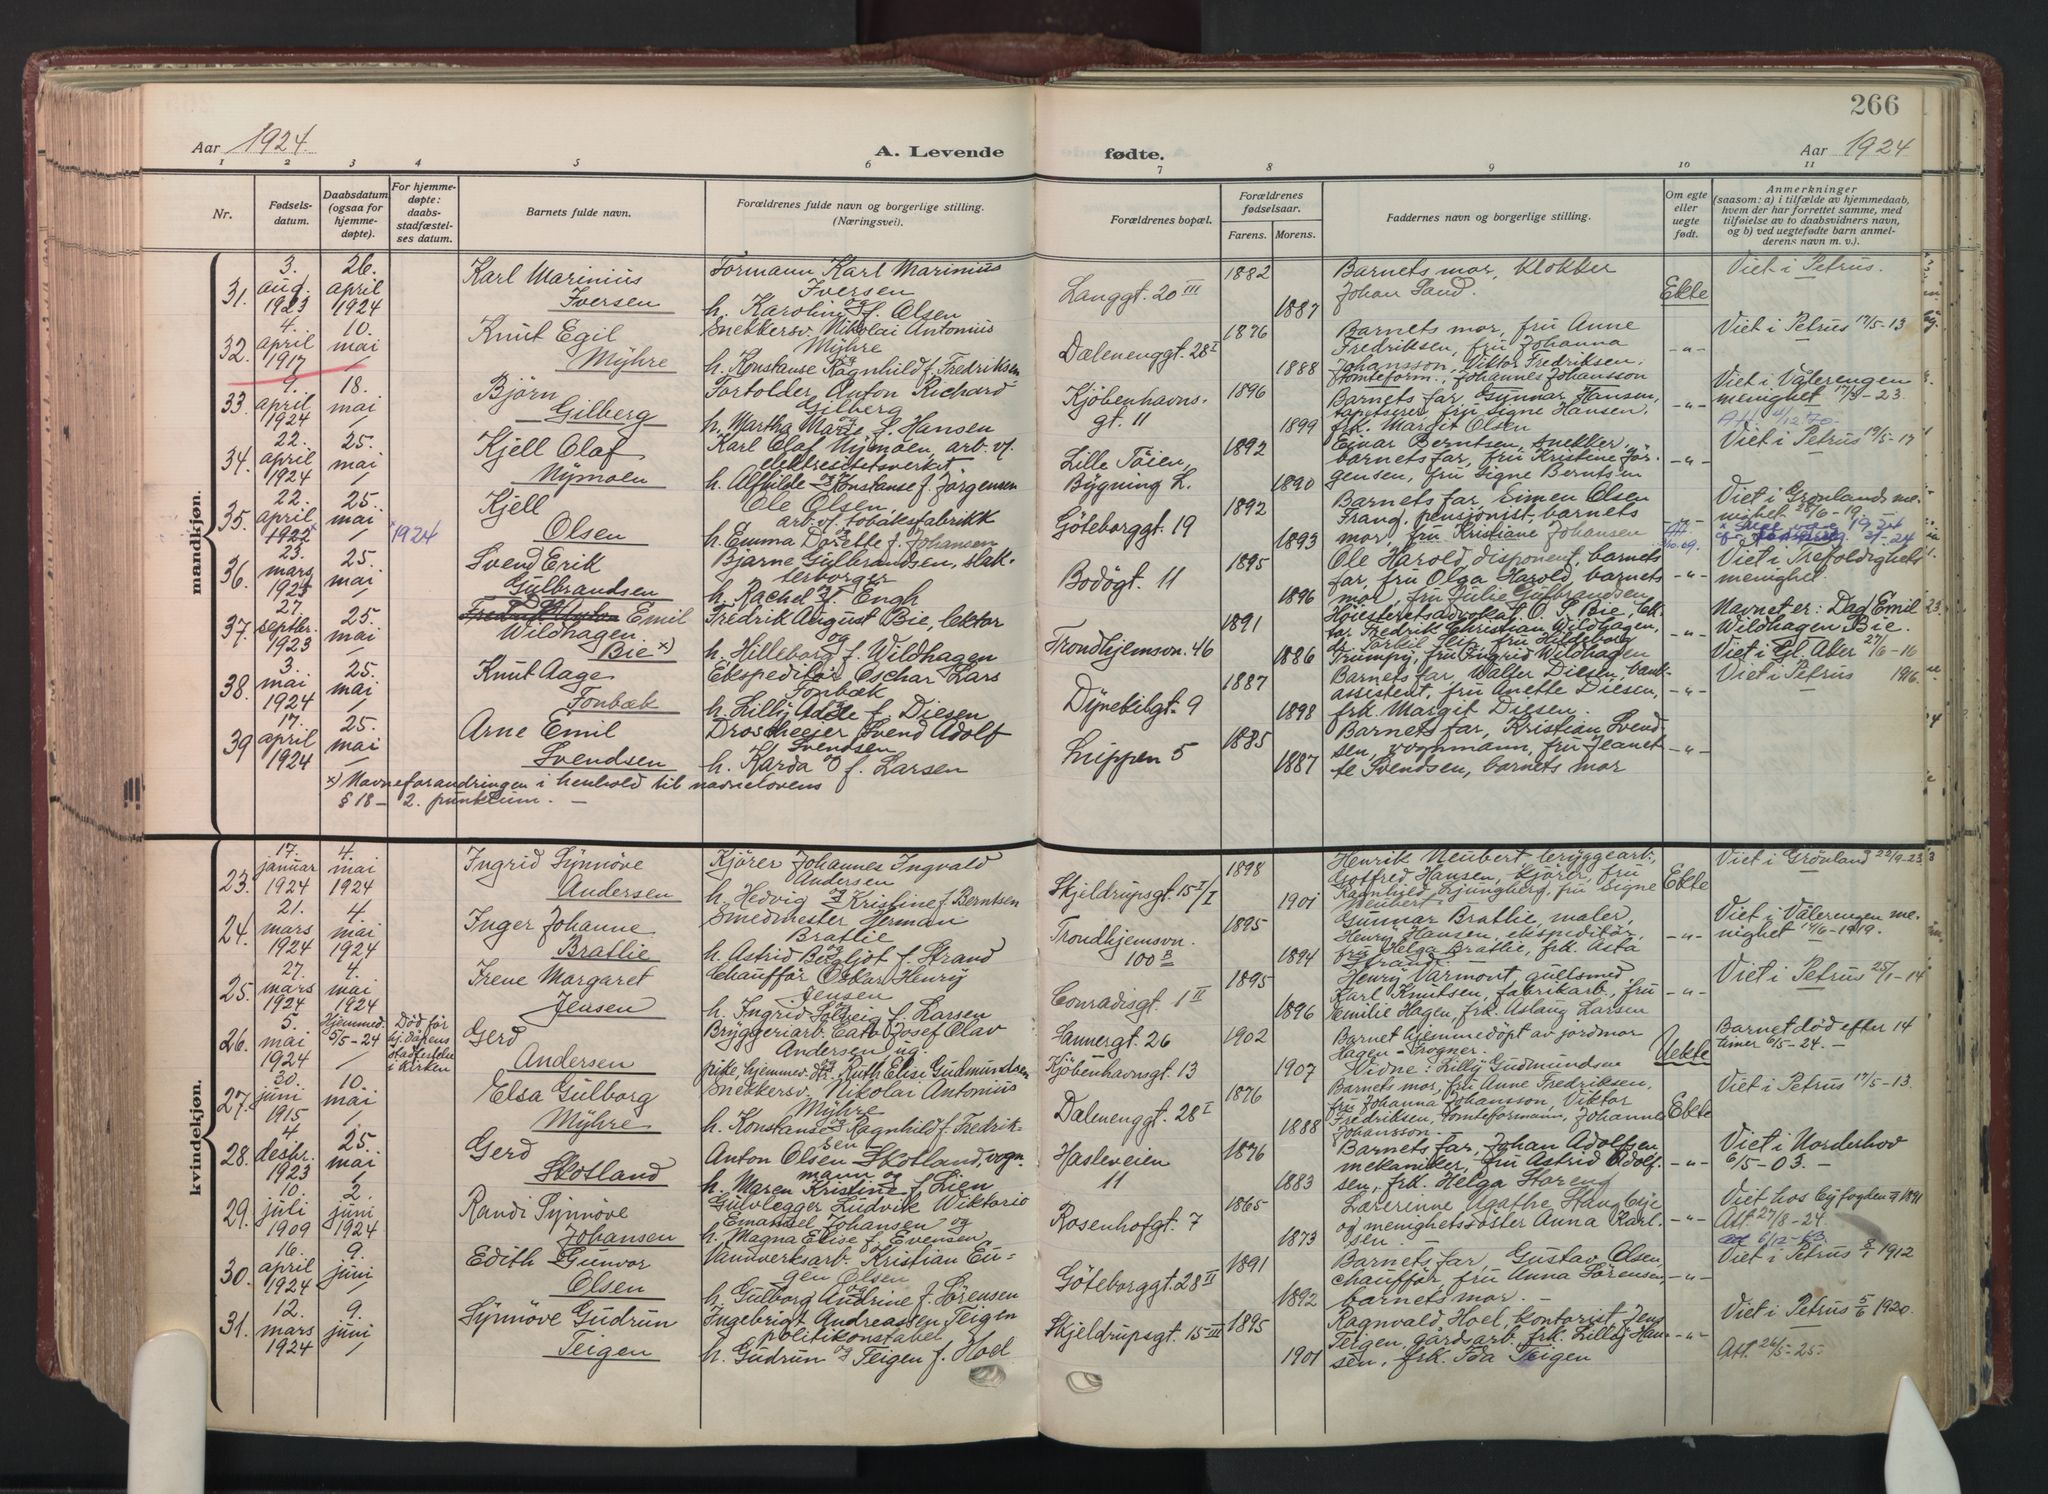 266
Aar 1924. A. Levende fødte. Aar 1924
1 2 3 4 5 6 7 8 9 10 11
Nr. Fødsels-datum. Daabsdatum (ogsaa for hjemme-døpte). For hjemme-døpte: daabs-stadfæstel-ses datum. Barnets fulde navn. Forældrenes fulde navn og borgerlige stilling. (Næringsvei). Forældrenes bopæl. Forældrenes fødselsaar. Farens. Morens. Faddernes navn og borgerlige stilling. Om egte eller uegte født. Anmerkninger (saasom: a) i tilfælde av hjemmedaab, hvem der har forrettet samme, med tilføielse av to daabsvidners navn, og b) ved uegtefødte barn anmel-derens navn m. v.).
mandkjøn.
31. 3. aug. 1923 26. april 1924 Karl Marinius Iversen Formann Karl Marinius Iversen og h. Karoline f. Olsen Langgt. 20 III 1882 1887 Barnets mor, klokker Johan Sand. Ekte Viet i Petrus.
32. 4. april 1917 10. mai / Knut Egil Myhre Snekkersv. Nikolai Antonius Myhre og h. Konstanse Ragnhild f. Fredriksen Dalenenggt. 28 I 1876 1888 Barnets mor, fru Anne Fredriksen, fru Johanna Johansson, Viktor Fredriksen, tomteform., Johannes Johansson -"- Viet i Petrus 17/5-13
33. april 1924 18. mai / Bjørn Gilberg Anton Richard Gilberg og h. Martha Marie f. Hansen Kjøbenhavns-gt. 11 1896 1899 Barnets far, Gunnar Hansen, tapetserer, fru Signe Hansen, frk. Margit Olsen -"- Viet i Vålerengen menighet 17/3-23. Att. 4/12 70.
34. 22. april 1924 25. mai / Kjell Olaf Nymoen Karl Olaf Nymoen, arb. v/ elektrisitetsverket og h. Alfhilde Konstanse f. Jørgensen Lille Tøien, Bygning L. 1892 1890 Einar Berntsen, snekker, barnets far, fru Kristine Jørgensen, fru Signe Berntsen -"- Viet i Petrus 19/5-17
35. 22. april 1922 x 25. mai / x 1924 Kjell Olsen Ole Olsen, arb. v/ tobaksfabrikk og h. Emma Dorette f. Johansen Göteborggt. 19 1892 1893 Barnets far, Simen Olsen Frang, pensionist, barnets mor, fru Kristiane Johansen Viet i Grønlands me-nighet 28/6-19.
36. 23. mars 1923 25. mai / Svend Erik Gulbrandsen Bjarne Gulbrandsen, slak-terborger og h. Rachel f. Engh Bodøgt. 11 1895 1896 Ole Harold, disponent, barnets far, fru Olga Harold, barnets mor, fru Julie Gulbrandsen -"- Viet i Trefoldighets menighet.
37. 27. septbr. 1923 25. mai / Emil Wildhagen Bie x) Fredrik August Bie, lektor og h. Hilleborg f. Wildhagen Trondhjemsvn. 46 1891 1886 Høiesteretsadvokat O. S. Bie, lek-tor Fredrik Christian Wildhagen, fru Hildeborg Trumpy, fru Ingrid Wildhagen -"- Navnet er: Dag Emil Wildhagen Bie. Viet i Gl. Aker 27/6-16
38. 3. mai 1924 25. mai / Knut Aage Fonbæk Ekspeditør Oschar Lars Fonbæk og h. Lilly Adele f. Diesen Dynekilgt. 9 1887 1898 Barnets far, Walter Diesen, bank-assistent, fru Anette Diesen, frk. Margit Diesen. -"- Viet i Petrus 1916.
39 17. april 1924 25. mai / Arne Emil Svendsen Droscheeier Svend Adolf Svendsen og h. Karda f. Larsen Snippen 5 1885 1887 Barnets far, Kristian Svend-sen, vognmann, fru Jeanet-te Svendsen, barnets mor -"-
x) Navneforandringen i henhold til navnelovens
§ 18 – 2. punktum. –
kvindekjøn.
23. 17. januar 1924 4. mai 1924 Ingrid Synnöve Andersen Kjører Johannes Ingvald Andersen og h. Hedvig Kristine f. Berntsen Skjeldrupsgt. 15 I/I 1898 1901 Henrik Neubert bryggearb., Gotfred Hansen, kjører, fru Ragnhild Ljungberg, fru Signe Neubert Ekte Viet i Grønland 22/9-23
24. 21. mars 1924 4. mai 1924 Inger Johanne Bratlie Smedmester Herman Bratlie og h. Astrid Bergljot f. Strand Trondhjemsvn. 100 B 1895 1894 Gunnar Bratlie, maler, Henry Hansen, ekspeditør, fru Helga Bratlie, frk. Asta Strand. -"- Viet i Vålerengen me-nighet 14/6-1919.
25. 27. mars 1924 4. mai 1924 Irene Margaret Jensen Chauffør Oskar Henry Jensen og h. Ingrid Solveig f. Larsen Conradisgt. 1 II 1895 1896 Henry Varmont, gullsmed, Karl Knutsen, fabrikarb., fru Emilie Hagen, frk. Aslaug Larsen -"- Viet i Petrus 25/1-14
26. 5. mai 1924 Hjemmed. 5/5-24 / Død før hj.dåpens stadfestelse i kirken Gerd Andersen Bryggeriarb. Cato Josef Olav Andersen, ug. og pike, hjemmed. Ruth Elise Gudmundsen Sannergt. 26 Kjøbenhavnsgt. 13 1902 1907 Barnet hjemmedöpt av jordmor Hagen-Trogner. Vidne: Lilly Gudmundsen Uekte Barnet död efter 14 timer 6/5-24. –
27. 30. juni 1915 10. mai / Elsa Gulborg Myhre Snekkersv. Nikolai Antonius Myhre og h. Konstanse Ragnhild f. Fredrik-sen Dalenenggt. 28 I 1876 1888 Barnets mor, fru Anne Fredriksen, fru Johanna Johansson, Viktor Fredriksen, tomteformann, Johannes Johansson. Ekte Viet i Petrus 17/5-13.
28. 4 desbr. 1923 25. mai / Gerd Skotland Anton Olsen Skotland, vogn-mann og h. Maren Kristine f. Lien Hasleveien 11 1876 1883 Barnets far, Johan Adolfsen mekaniker, fru Astrid Adolf-sen, frk. Helga Storeng -"- Viet i Norderhov 6/5-03. –
29. 10. juli 1909 2. juni 1924 Randi Synnöve Johansen Gulvlegger Ludvik Wiktorio Emanuel Johansen og h. Magna Elise f. Evensen Rosenhofgt. 7 1865 1873 Lærerinne Agathe og menighetssøster Anna Karl-sen. -"- Viet hos byfogden 1891 Att. 27/8-24. att 6/12-63.
30. 16. april 1924 9. juni / Edith Gunvor Olsen Vandverksarb. Kristian Eu-gen Olsen og h. Gulborg Andrine f. Sørensen Göteborggt. 28 II 1891 1892 Barnets far, Gustav Olsen, chauffør, fru Anna Sørensen, barnets mor. – -"- Viet i Petrus 8/1 1912
31. 12. mars 1924 9. juni / Synnöve Gudrun Teigen Ingebrigt Andreassen Teigen politikonstabel og h. Gudrun Teigen f. Hoel Skjeldrupsgt. 15 III 1895 1901 Ragnvald Hoel, kontorist, Jens Teigen, gårdsarb., frk. Lilly Han-sen, frk. Ida Teigen -"- Viet i Petrus 5/6 1920. Att. 26/5-25.